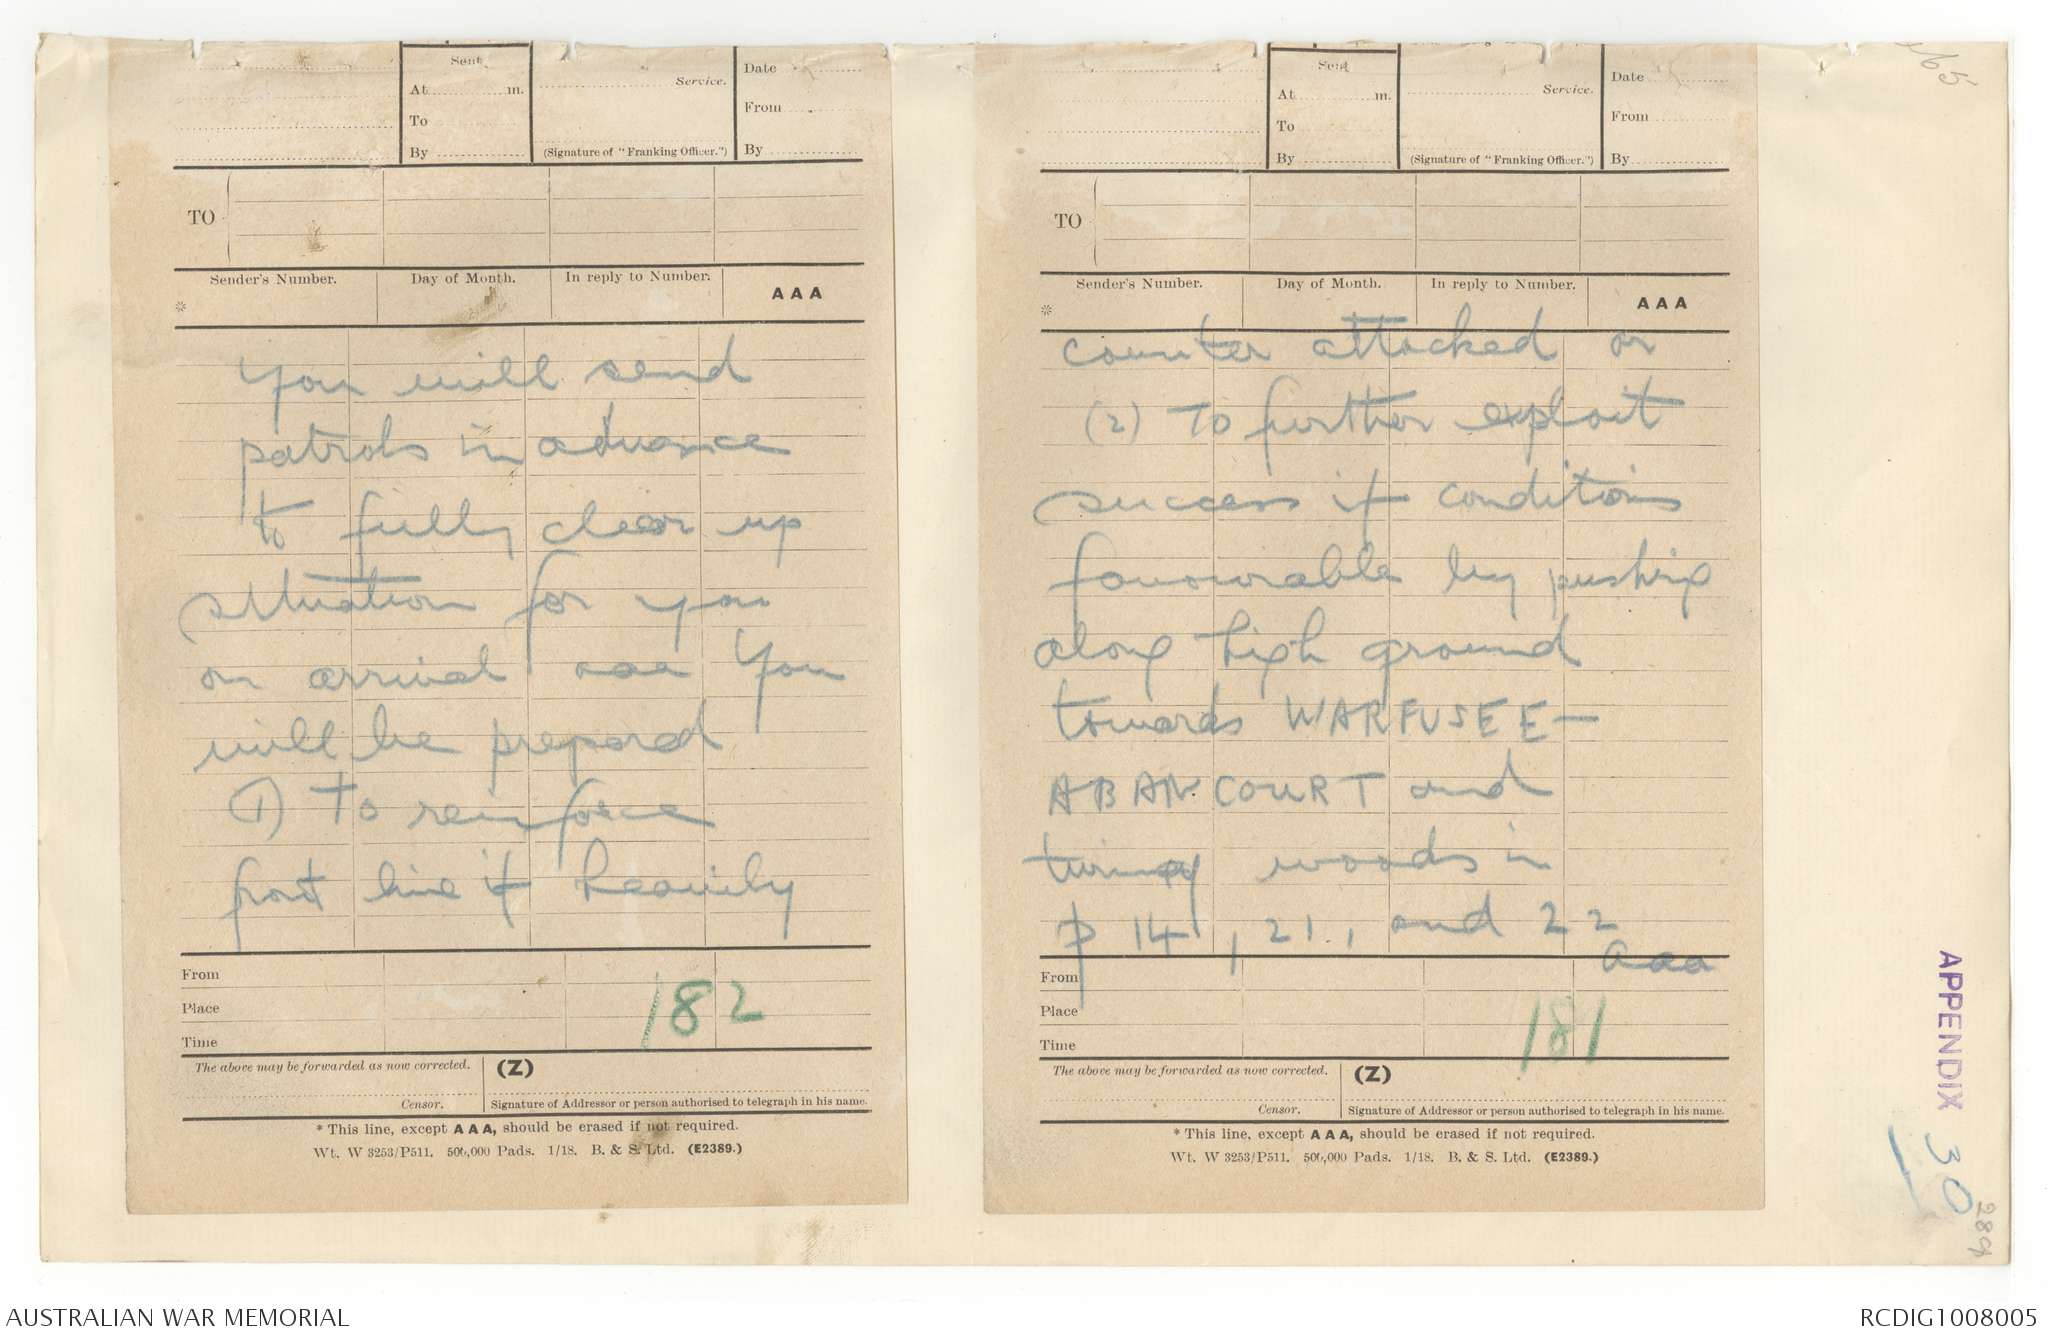 Sent
At ........ m.
To
By
Service.
(Signature of "Franking Officer.")
Date
From
By
TO
Sender's Number.
Day of Month.
In reply to Number.
AAA
*
You will send
patrols in advance
to fully clear up
situation for you
on arrival aaa You
will be prepared
(1) To reinforce
front line if heavily
From
Place
Time
182
The above may be forwarded as now corrected.
(Z)
Censor.
Signature of Addressor or person authorised to telegraph in his name.
* This line, except AAA, should be erased if not required.
Wt. W 3253/P511. 500,000 Pads. 1/18. B. & S. Ltd. (E2389.)
Sent
At ........ m.
To
By
Service.
(Signature of "Franking Officer.")
Date
From
By
TO
Sender's Number.
Day of Month.
In reply to Number.
AAA
*
counter attacked or
(2) To further exploit
success if conditions
favourable by pushing
along high ground
towards WARFUSEE-
ABANCOURT and
turning woods in
P 14, 21, and 22
aaa
From
Place
Time
181
The above may be forwarded as now corrected.
(Z)
Censor.
Signature of Addressor or person authorised to telegraph in his name.
* This line, except AAA, should be erased if not required.
Wt. W 3253/P511. 500,000 Pads. 1/18. B. & S. Ltd. (E2389.)
APPENDIX 30
289
AUSTRALIAN WAR MEMORIAL
RCDIG1008005